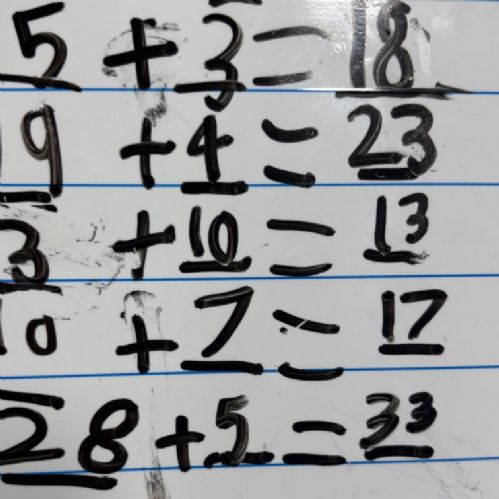 5 + 3 = 18
19 + 4 = 23
3 + 10 = 13
10 + 7 = 17
28 + 5 = 33